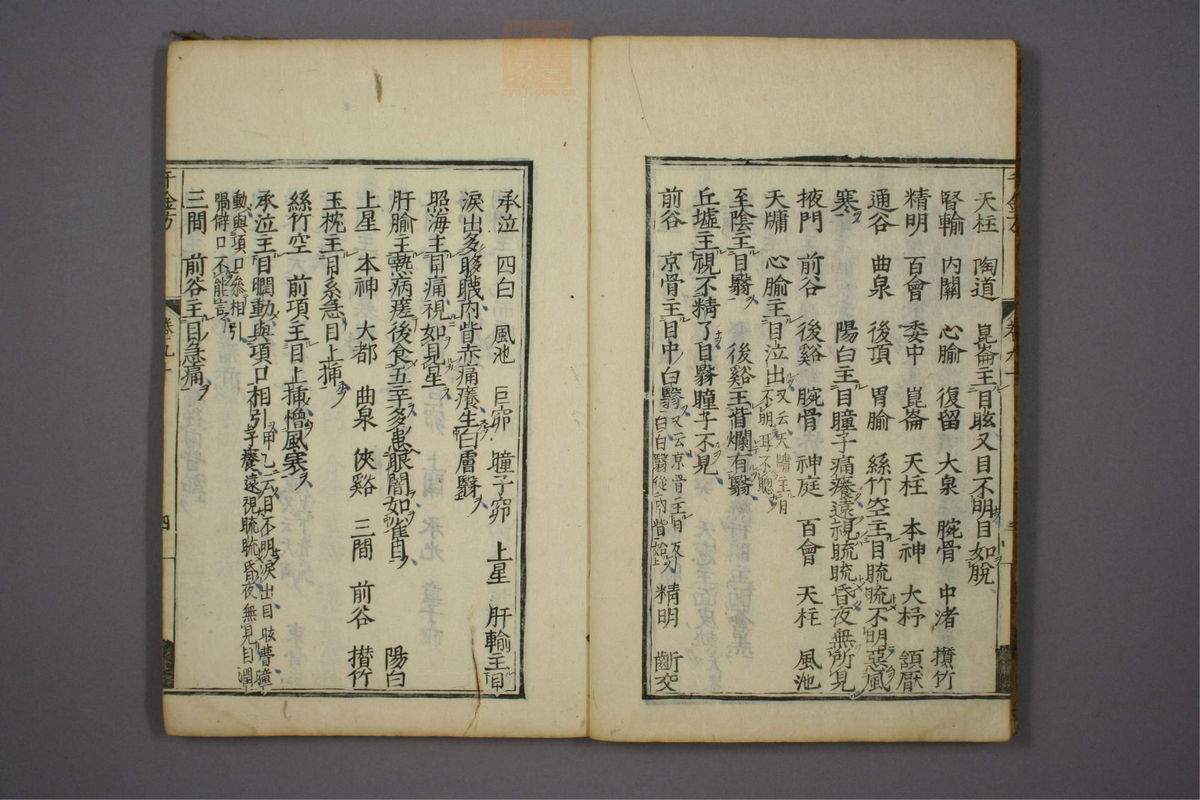 天柱 陶道 崑崙主目眩又目不明目如脫
腎輸 内關 心腧 復留 大泉 腕骨 中渚 攅竹
精明 百會 委中 崑崙 天柱 本神 大杼 頷厭
通谷 曲泉 後頂 胃腧 絲竹空主目䀮䀮不明惡風
寒 陽白主目瞳子痛癢遠視䀮䀮昏夜無所見
掖門 前谷 後谿 腕骨 神庭 百會 天柱 風池
天牖 心腧主目泣出又云天牖主目不明耳不聰
至陰主目翳 後谿主眥爛有翳
丘墟主視不精了目翳瞳子不見
前谷 京骨主目中白翳又云京骨主目反白白翳從内眥始 精明 齗交
承泣 四白 風池 巨窌 瞳子窌 上星 肝輸主目
淚出多眵䁾内眥赤痛癢生白膚翳
照海主目痛視如見星
肝腧主熱病瘥後食五辛多患眼闇如雀目
上星 本神 大都 曲泉 俠谿 三間 前谷 攅竹
玉枕主目系急目上揷 陽白
絲竹空 前項主目上揷憎風寒
承泣主目瞤動與項口相引甲乙云目不明淚出目眩瞢瞳
子癢遠視䀮䀮昏夜無見目瞤
動與項口參相引
喎僻口不能言
三間 前谷主目急痛
千金方 卷九十 四